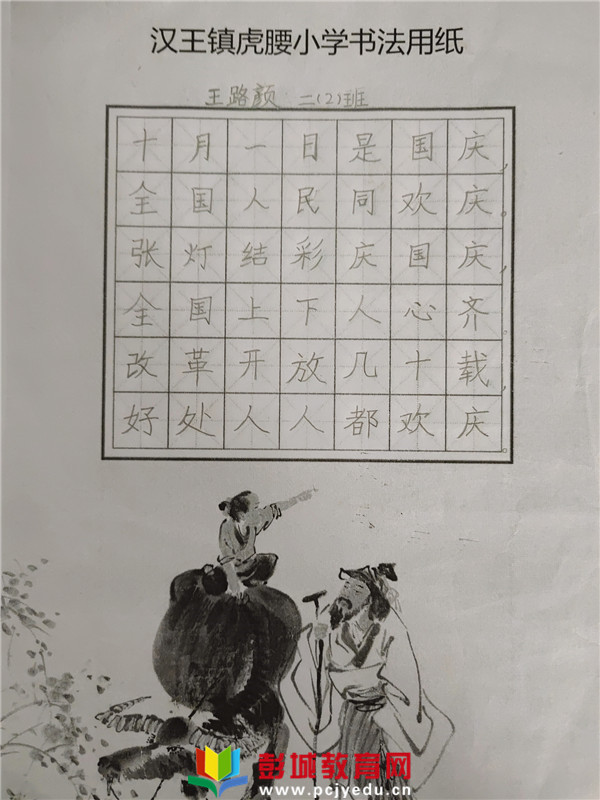 汉王镇虎腰小学书法用纸
王路颜 二(2)班
十月一日是国庆,
全国人民同欢庆。
张灯结彩庆国庆,
全国上下人心齐。
改革开放几十载,
好处人人都欢庆。
彭城教育网
www.pcjyedu.cn